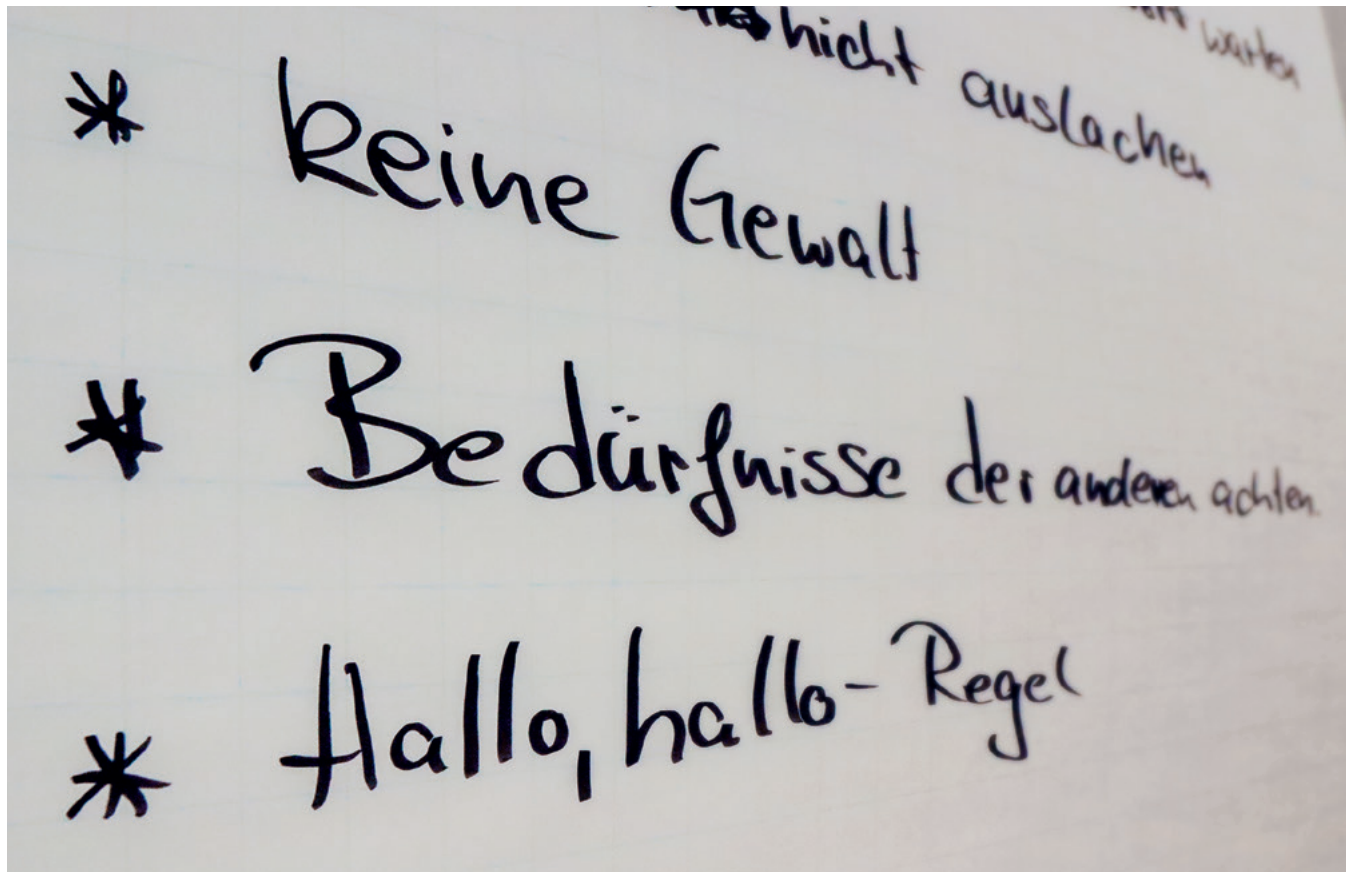 warten
nicht auslachen
* keine Gewalt
* Bedürfnisse der anderen achten.
* Hallo, hallo-Regel